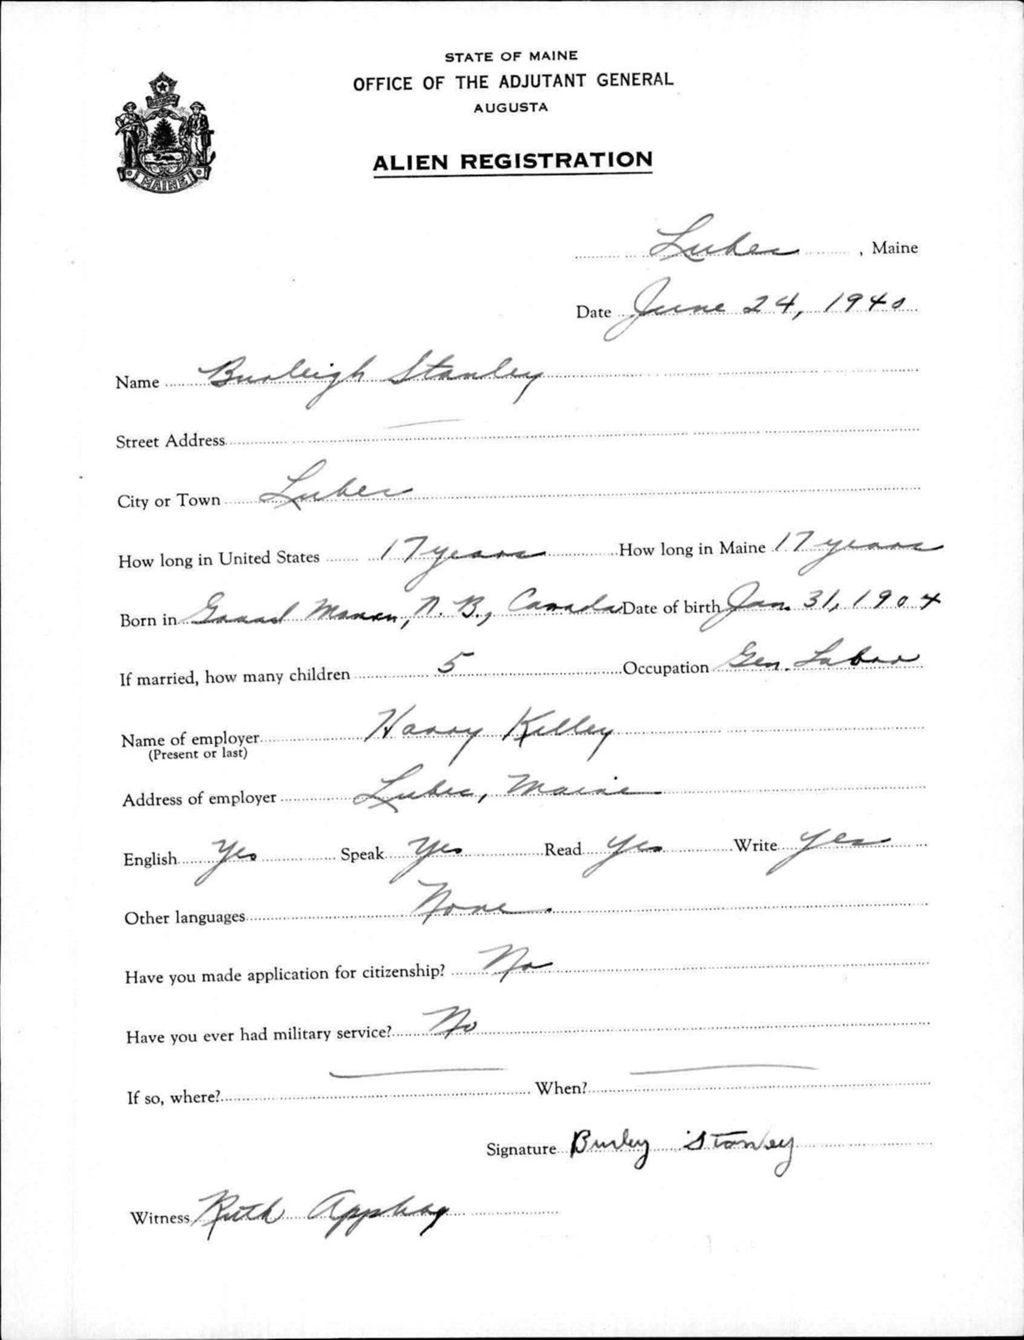 STATE OF MAINE
OFFICE OF THE ADJUTANT GENERAL
AUGUSTA
ALIEN REGISTRATION
MAINE
Lubec, Maine
Date June 24, 1940
Name Burleigh Stanley
Street Address —
City or Town Lubec
How long in United States 17 years How long in Maine 17 years
Born in Grand Manan, N. B., Canada Date of birth Jan. 31, 1904
If married, how many children 5 Occupation Gen. Labor
Name of employer Harry Kelley
(Present or last)
Address of employer Lubec, Maine
English Yes Speak Yes Read Yes Write Yes
Other languages None.
Have you made application for citizenship? No
Have you ever had military service? No
If so, where? — When? —
Signature Burley Stanley
Witness Ruth Appleby